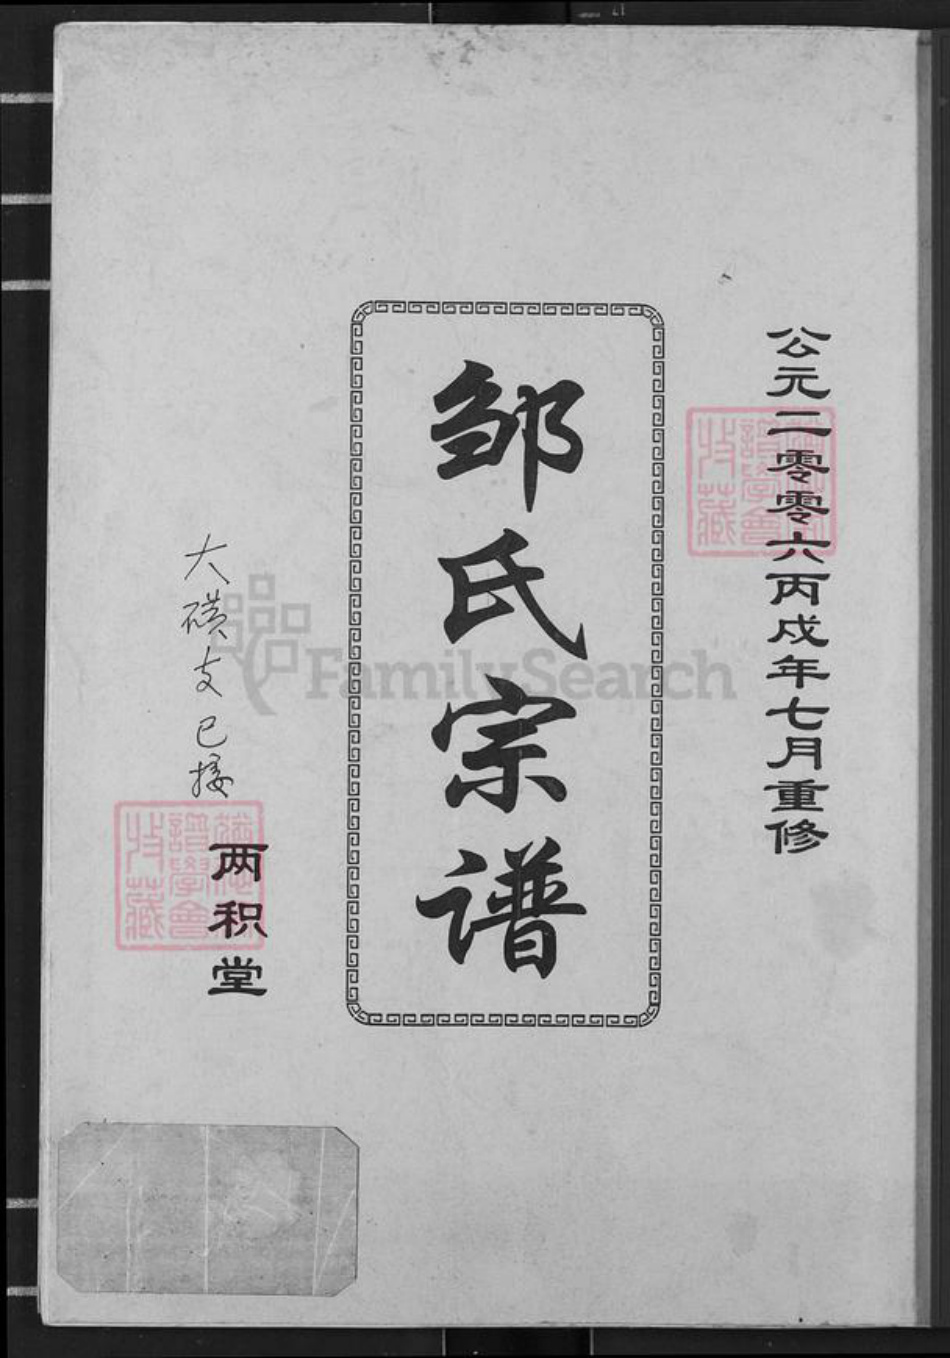 公元二零零六丙戌年七月重修
邹氏宗谱
大磺支已接
两积堂
譜學會收藏
譜學會收藏
FamilySearch